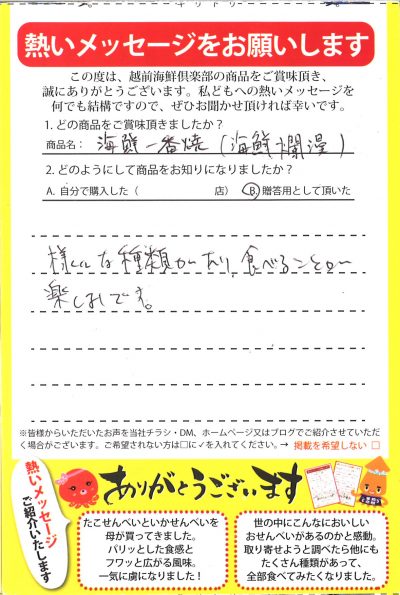 キリトリ
熱いメッセージをお願いします
この度は、越前海鮮倶楽部の商品をご賞味頂き、
誠にありがとうございます。私どもへの熱いメッセージを
何でも結構ですので、ぜひお聞かせ頂ければ幸いです。
1. どの商品をご賞味頂きましたか？
商品名： 海鮮一番焼（海鮮爛漫）
2. どのようにして商品をお知りになりましたか？
A. 自分で購入した（ 店） B. 贈答用として頂いた
様々な種類があり、食べることが
楽しみです。
※皆様からいただいたお声を当社チラシ・DM、ホームページ又はブログでご紹介させていただ
く場合がございます。ご希望されない方は□に✓を入れてください。→ 掲載を希望しない □
熱いメッセージ
ご紹介いたします
ありがとうございます
たこせんべいといかせんべいを
母が買ってきました。
パリッとした食感と
フワッと広がる風味。
一気に虜になりました！
世の中にこんなにおいしい
おせんべいがあるのかと感動。
取り寄せようと調べたら他にも
たくさん種類があって、
全部食べてみたくなりました。